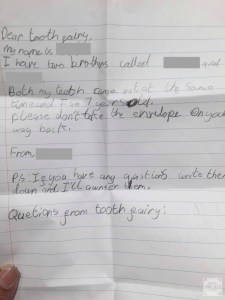 Dear tooth pairy.
my name is
I have two brothers called and
Both my tooth came out at the same
time and I'm 7 years old.
please don't take the envelope. On your
way back.
From
P.S: If you have any qustions write them
down and I'll awnser them.
Quetions from tooth pairy: